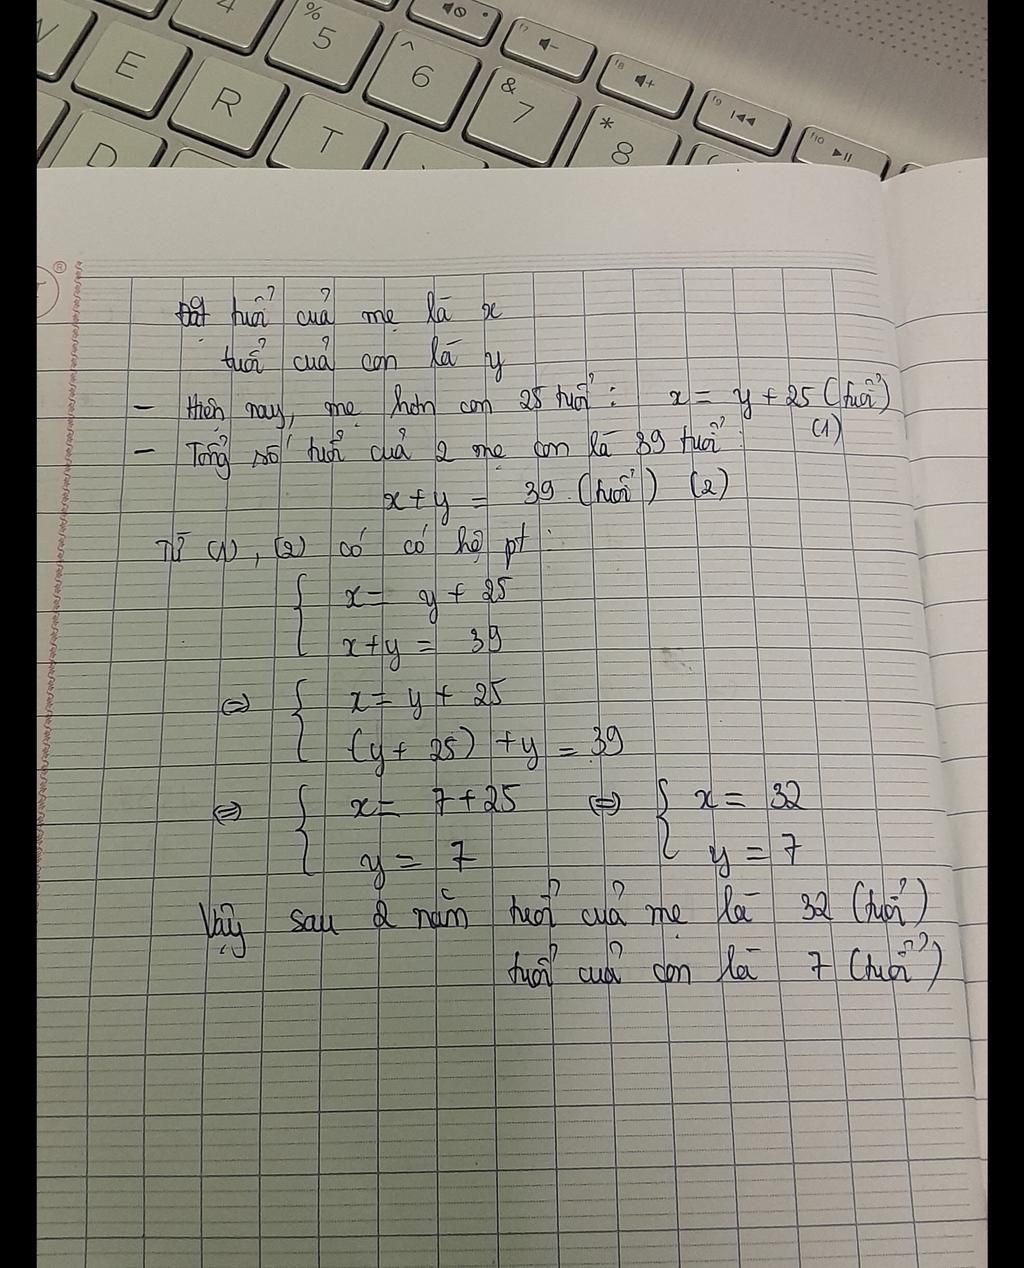 4 % 5 ^ 6 & 7 * 8
f7 f8 f9 f10
E R T
D
®
Đặt tuổi của mẹ là x
tuổi của con là y
- Hiện nay, mẹ hơn con 25 tuổi : x = y + 25 (tuổi)
(1)
- Tổng số tuổi của 2 mẹ con là 39 tuổi :
x + y = 39 (tuổi) (2)
Từ (1), (2) có có hệ pt :
{ x = y + 25
x + y = 39
⇔ { x = y + 25
(y + 25) + y = 39
⇔ { x = 7 + 25 ⇔ { x = 32
y = 7 y = 7
Vậy sau 2 năm tuổi của mẹ là 32 (tuổi)
tuổi của con là 7 (tuổi)